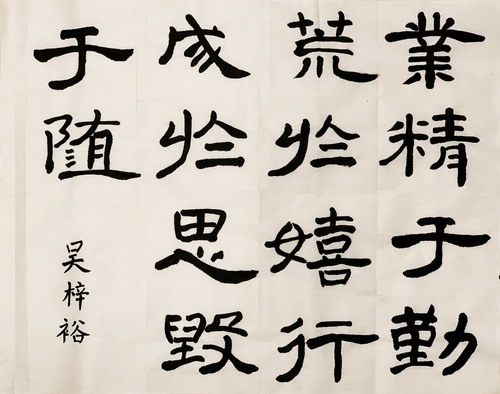 業精于勤
荒於嬉行
成於思毀
于随
吴梓裕